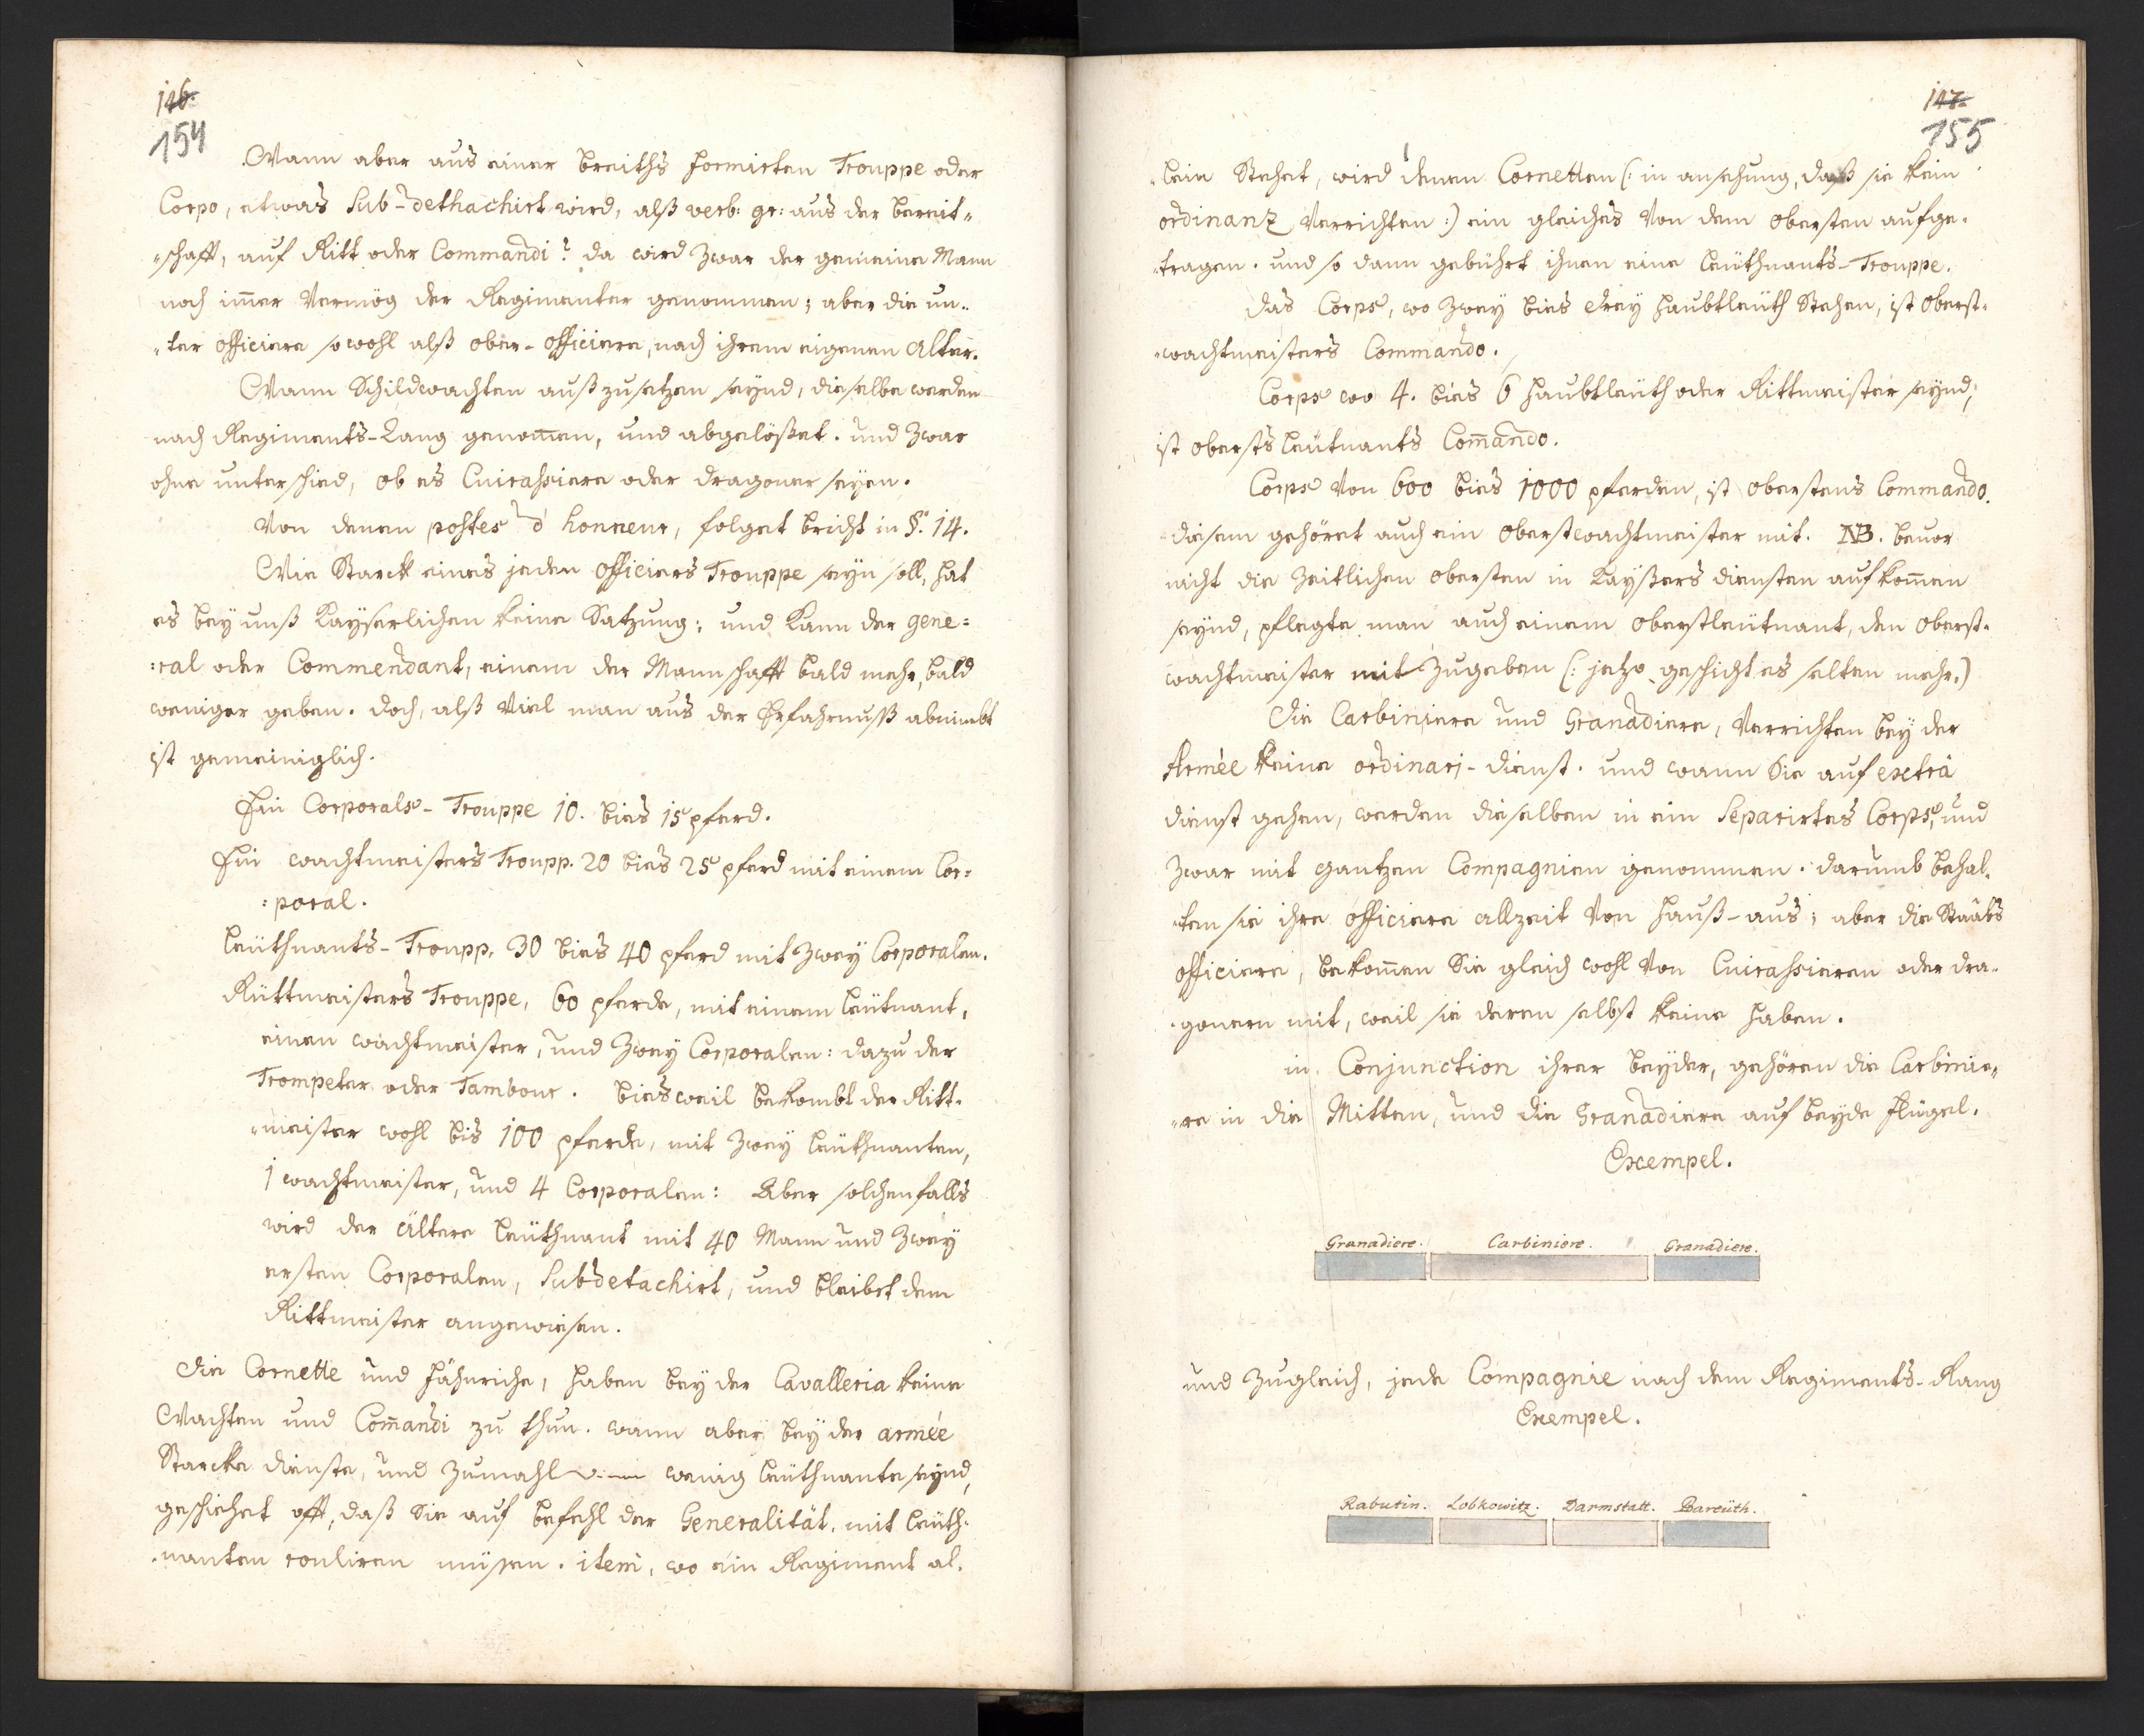 146.
154
Wann aber aus einer breiths formirten Trouppe oder
Corpo, etwas Sub-dethachirt wird, alß verb: gr: aus der bereit„
„schafft, auf Ritt oder Commandi? da wird zwar der gemeine Mann
noch im̄er vermög der Regimenter genommen; aber die un„
„ter officiere so wohl alß ober-officiere, nach ihrem eigenen Alter.
Wann Schildwachten auß zu setzen seynd, dieselbe werden
nach Regiments-Rang genom̄en, und abgelößet. und zwar
ohne unterschied, ob es Cuirassiere oder dragoner seyen.
Von denen postes d'honneur, folget bricht in §: 14.
Wie Starck eines jeden officiers Trouppe seyn soll, hat
es bey unß Kayserlichen keine Satzung: und kann der gene=
:ral oder Commendant, einem der Mannschafft bald mehr, bald
weniger geben. doch, alß viel man aus der Erfahrnuß abnimbt
ist gemeiniglich.
Ein Corporals-Trouppe 10. bies 15 pferd.
Ein wachtmeisters Troupp. 20 bies 25 pferd mit einem Cor=
:poral.
Leüthnants-Troupp. 30 bies 40 pferd mit zwey Corporalen.
Rüttmeisters Trouppe, 60 pferde, mit einem Leütnant,
einen wachtmeister, und zwey Corporalen: dazu der
Trompeter oder Tambour. bies weil bekombt der Ritt.
„meister wohl bis 100 pferde, mit zwey Leüthnanten,
1 wachtmeister, und 4 Corporalen: Aber solchenfalls
wird der Ältere Leüthnant mit 40 Mann und zwey
ersten Corporalen, Subdetachirt, und bleibet dem
Rittmeister angewiesen.
Die Cornette und fähnriche, haben bey der Cavalleria keine
Wachten und Com̄andi zu thun. wann aber bey der armée
Starcke dienste, und zumahl wenig Leüthnante seynd,
geschiehet offt, daß Sie auf befehl der Generalität, mit Leüth-
-nanten rouliren müssen. item, wo ein Regiment al-
147.
155
-lein Stehet, wird denen Cornetten (: in ansehung, daß sie kein
ordinanz verrichten :) ein gleiches von dem obersten aufge-
-tragen. und so dann gebührt ihnen eine Leüthnants-Trouppe.
das Corps, wo zwey bies drey haubtleüth Stehen, ist oberst-
-wachtmeisters Commando.
Corps wo 4. bies 6 haubtleüth oder Rittmeister seynd,
ist oberstLeütnants Com̄ando.
Corps von 600 bies 1000 pferden, ist oberstens Commando.
diesem gehöret auch ein oberstwachtmeister mit. NB. bevor
nicht die zeitlichen obersten in Kayßers diensten aufkom̄en
seynd, pflegte man auch einem oberstleütnant, den oberst-
wachtmeister mit zugeben (: jetzo geschicht es selten mehr.)
Die Carbiniere und Granadiere, verrichten bey der
Armée keine ordinarj-dienst. und wann Sie auf extra
dienst gehen, werden dieselben in ein Separirtes Corps, und
zwar mit gantzen Compagnien genommen. darumb behal-
-ten sie ihre officiere allzeit von hauß-aus; aber die Staabs
officiere, bekom̄en Sie gleich wohl von Cuirassieren oder dra-
-gonern mit, weil sie deren selbst keine haben.
in Conjunction ihrer beyder, gehören die Carbinie„
„re in die Mitten, und die Granadiere auf beyde flügel.
Exempel.
Granadiere. Carbiniere. Granadiere.
und zugleich, jede Compagnie nach dem Regiments-Rang
Exempel.
Rabutin. Lobkowitz. Darmstatt. Bareüth.